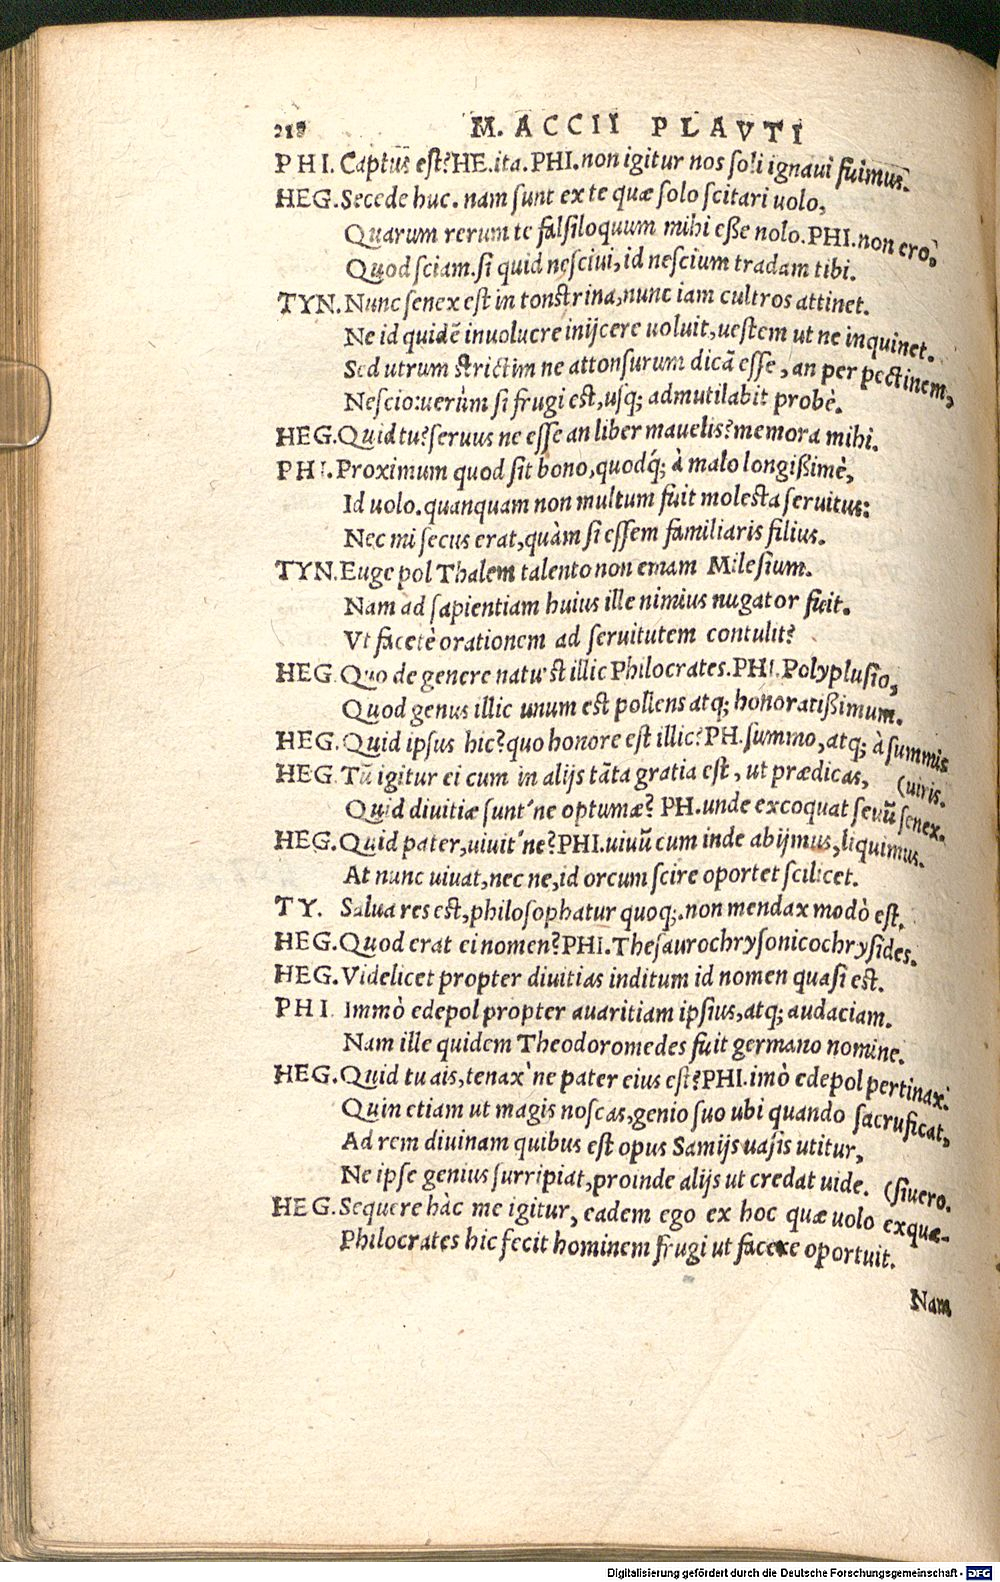 218 M. ACCII PLAVTI
PHI. Captus est? HE. ita. PHI. non igitur nos soli ignaui fuimus.
HEG. Secede huc. nam sunt ex te quæ solo scitari uolo,
Quarum rerum te falsiloquum mihi eße nolo. PHI. non ero,
Quod sciam. si quid nesciui, id nescium tradam tibi.
TYN. Nunc senex est in tonstrina, nunc iam cultros attinet.
Ne id quidē inuolucre inijcere uoluit, uestem ut ne inquinet.
Sed utrum strictim ne attonsurum dicā esse, an per pectinem,
Nescio: uerùm si frugi est, usq; admutilabit probè.
HEG. Quid tu? seruus ne esse an liber mauelis? memora mihi.
PHI. Proximum quod sit bono, quodq́; à malo longißimè,
Id uolo. quanquam non multum fuit molesta seruitus:
Nec mi secus erat, quàm si essem familiaris filius.
TYN. Euge pol Thalem talento non emam Milesium.
Nam ad sapientiam huius ille nimius nugator fuit.
Vt facetè orationem ad seruitutem contulit?
HEG. Quo de genere natu'st illic Philocrates. PHI. Polyplusio,
Quod genus illic unum est pollens atq; honoratißimum.
HEG. Quid ipsus hic? quo honore est illic? PH. summo, atq; à summis
HEG. Tū igitur ei cum in alijs tāta gratia est, ut prædicas, (uiris.
Quid diuitiæ sunt'ne optumæ? PH. unde excoquat seuū senex.
HEG. Quid pater, uiuit'ne? PHI. uiuū cum inde abijmus, liquimus.
At nunc uiuat, nec ne, id orcum scire oportet scilicet.
TY. Salua res est, philosophatur quoq;. non mendax modò est.
HEG. Quod erat ei nomen? PHI. Thesaurochrysonicochrysides.
HEG. Videlicet propter diuitias inditum id nomen quasi est.
PHI Immò edepol propter auaritiam ipsius, atq; audaciam.
Nam ille quidem Theodoromedes fuit germano nomine.
HEG. Quid tu ais, tenax'ne pater eius est? PHI. imò edepol pertinax.
Quin etiam ut magis noscas, genio suo ubi quando sacruficat,
Ad rem diuinam quibus est opus Samijs uasis utitur,
Ne ipse genius surripiat, proinde alijs ut credat uide. (siuero.
HEG. Sequere hàc me igitur, eadem ego ex hoc quæ uolo exquæ-
Philocrates hic fecit hominem frugi ut facere oportuit.
Nam
Digitalisierung gefördert durch die Deutsche Forschungsgemeinschaft - DFG